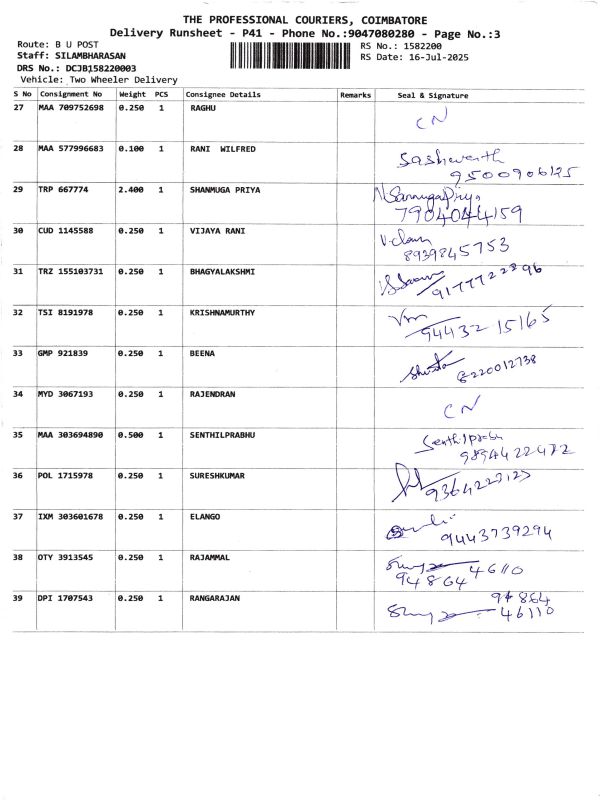 THE PROFESSIONAL COURIERS, COIMBATORE
Delivery Runsheet - P41 - Phone No.:9047080280 - Page No.:3
Route: B U POST
RS No.: 1582200
Staff: SILAMBHARASAN
RS Date: 16-Jul-2025
DRS No.: DCJB158220003
Vehicle: Two Wheeler Delivery
S No Consignment No Weight PCS Consignee Details Remarks Seal & Signature
27 MAA 709752698 0.250 1 RAGHU CN
28 MAA 577996683 0.100 1 RANI WILFRED Sashwenth
9500906125
29 TRP 667774 2.400 1 SHANMUGA PRIYA N.SanmugaPriya
7904044159
30 CUD 1145588 0.250 1 VIJAYA RANI
8939845753
31 TRZ 155103731 0.250 1 BHAGYALAKSHMI
9177722896
32 TSI 8191978 0.250 1 KRISHNAMURTHY
94432 15165
33 GMP 921839 0.250 1 BEENA
6220012738
34 MYD 3067193 0.250 1 RAJENDRAN CN
35 MAA 303694890 0.500 1 SENTHILPRABHU Senthilprabu
9894422472
36 POL 1715978 0.250 1 SURESHKUMAR
9364223123
37 IXM 303601678 0.250 1 ELANGO
9443739294
38 OTY 3913545 0.250 1 RAJAMMAL 46110
94864
39 DPI 1707543 0.250 1 RANGARAJAN 94864
46110